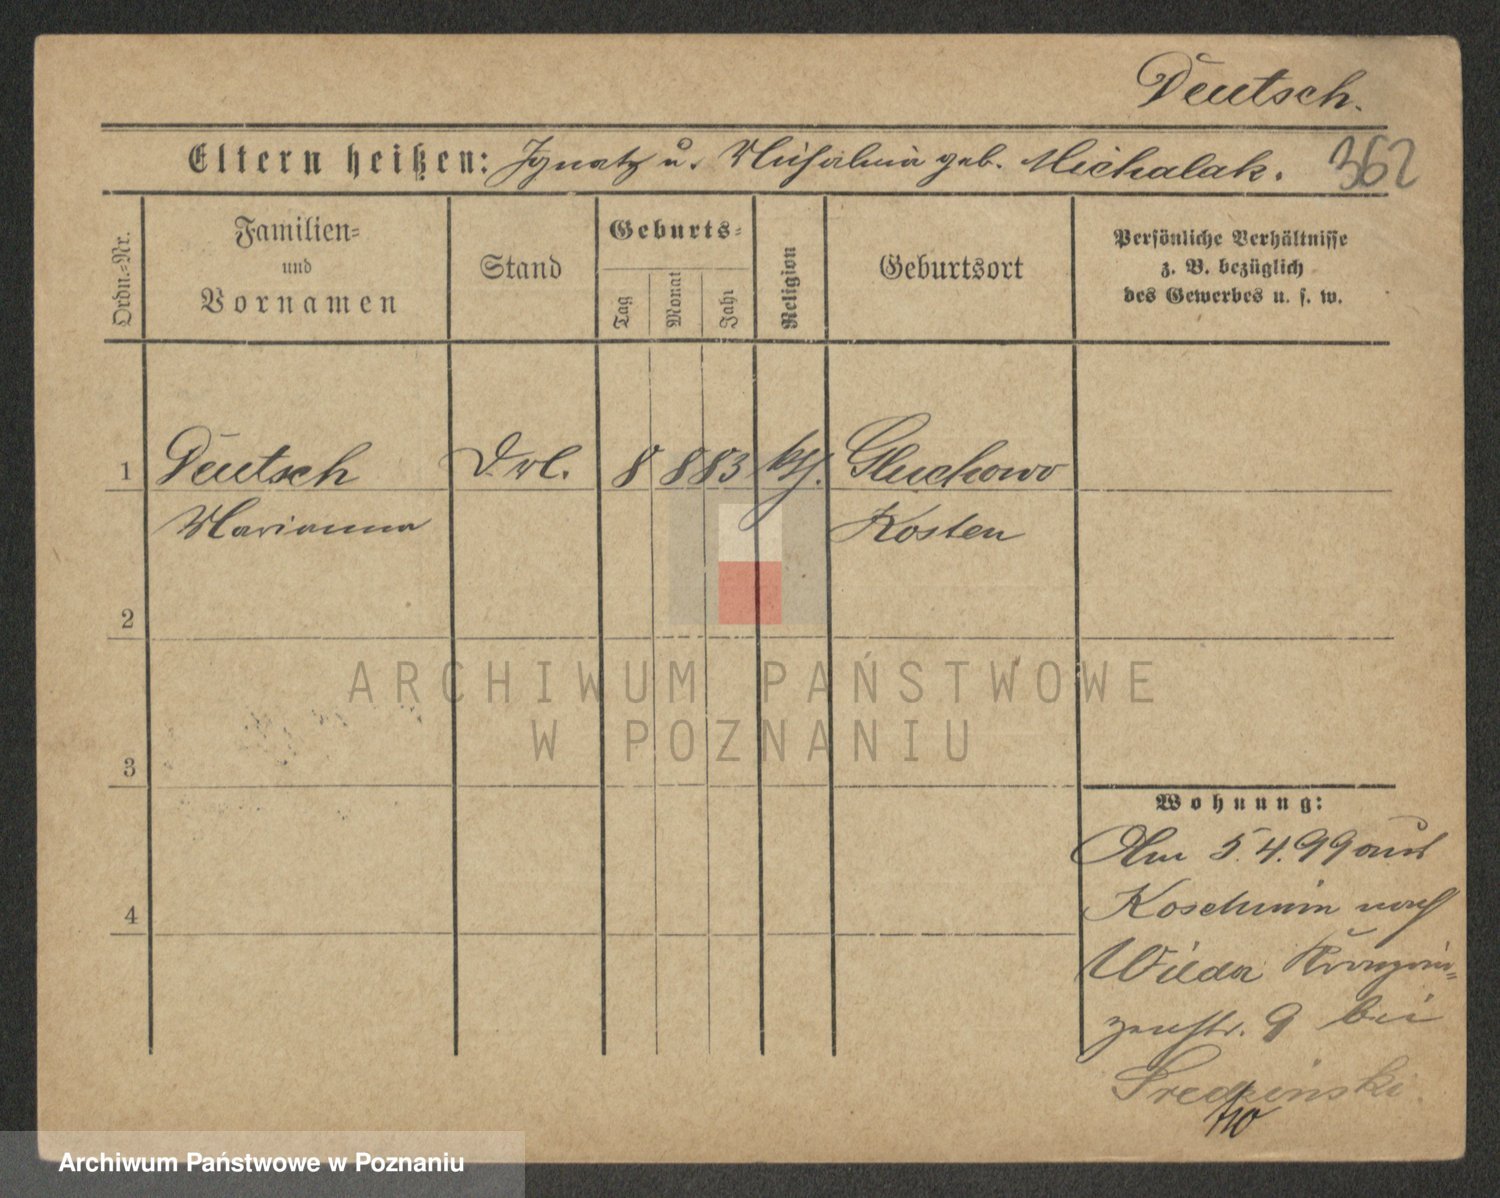 Deutsch.
Eltern heißen: Ignatz u. geb. Michalak. 362
Ordn.-Nr.
Familien-
und
Vornamen
Stand
Geburts-
Tag
Monat
Jahr
Religion
Geburtsort
Persönliche Verhältnisse
z. B. bezüglich
des Gewerbes u. s. w.
1 Deutsch 8 8 83 kth. Gluchowo
Marianna Kosten
2
3
4
ARCHIWUM PAŃSTWOWE
W POZNANIU
Wohnung:
Am 5.4.99 aus
Koschmin nach
Wilda Kronprin-
zenstr. 9 bei
Sredzinski.
Archiwum Państwowe w Poznaniu